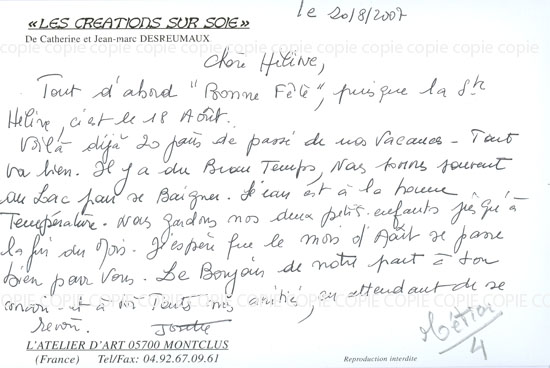 le 20/8/2007
«LES CREATIONS SUR SOIE»
De Catherine et Jean-marc DESREUMAUX
Chère Hélène,
Tout d'abord "Bonne Fête", puisque la Ste
Hélène, c'est le 18 Août.
Voilà déjà 20 jours de passé de nos Vacances - Tout
va bien. Il y a du Beau Temps, Nous sommes souvent
au Lac pour se Baigner. L'eau est à la bonne
Température. Nous gardons nos deux petits-enfants jusqu'à
la fin du Mois. J'espère que le mois d'Août se passe
bien pour Vous. Le Bonjour de notre part à ton
et à toi toutes nos amitiés, en attendant de se
revoir.
L'ATELIER D'ART 05700 MONTCLUS
(France) Tel/Fax: 04.92.67.09.61
Reproduction interdite
4
COPIE COPIE COPIE COPIE COPIE COPIE COPIE COPIE